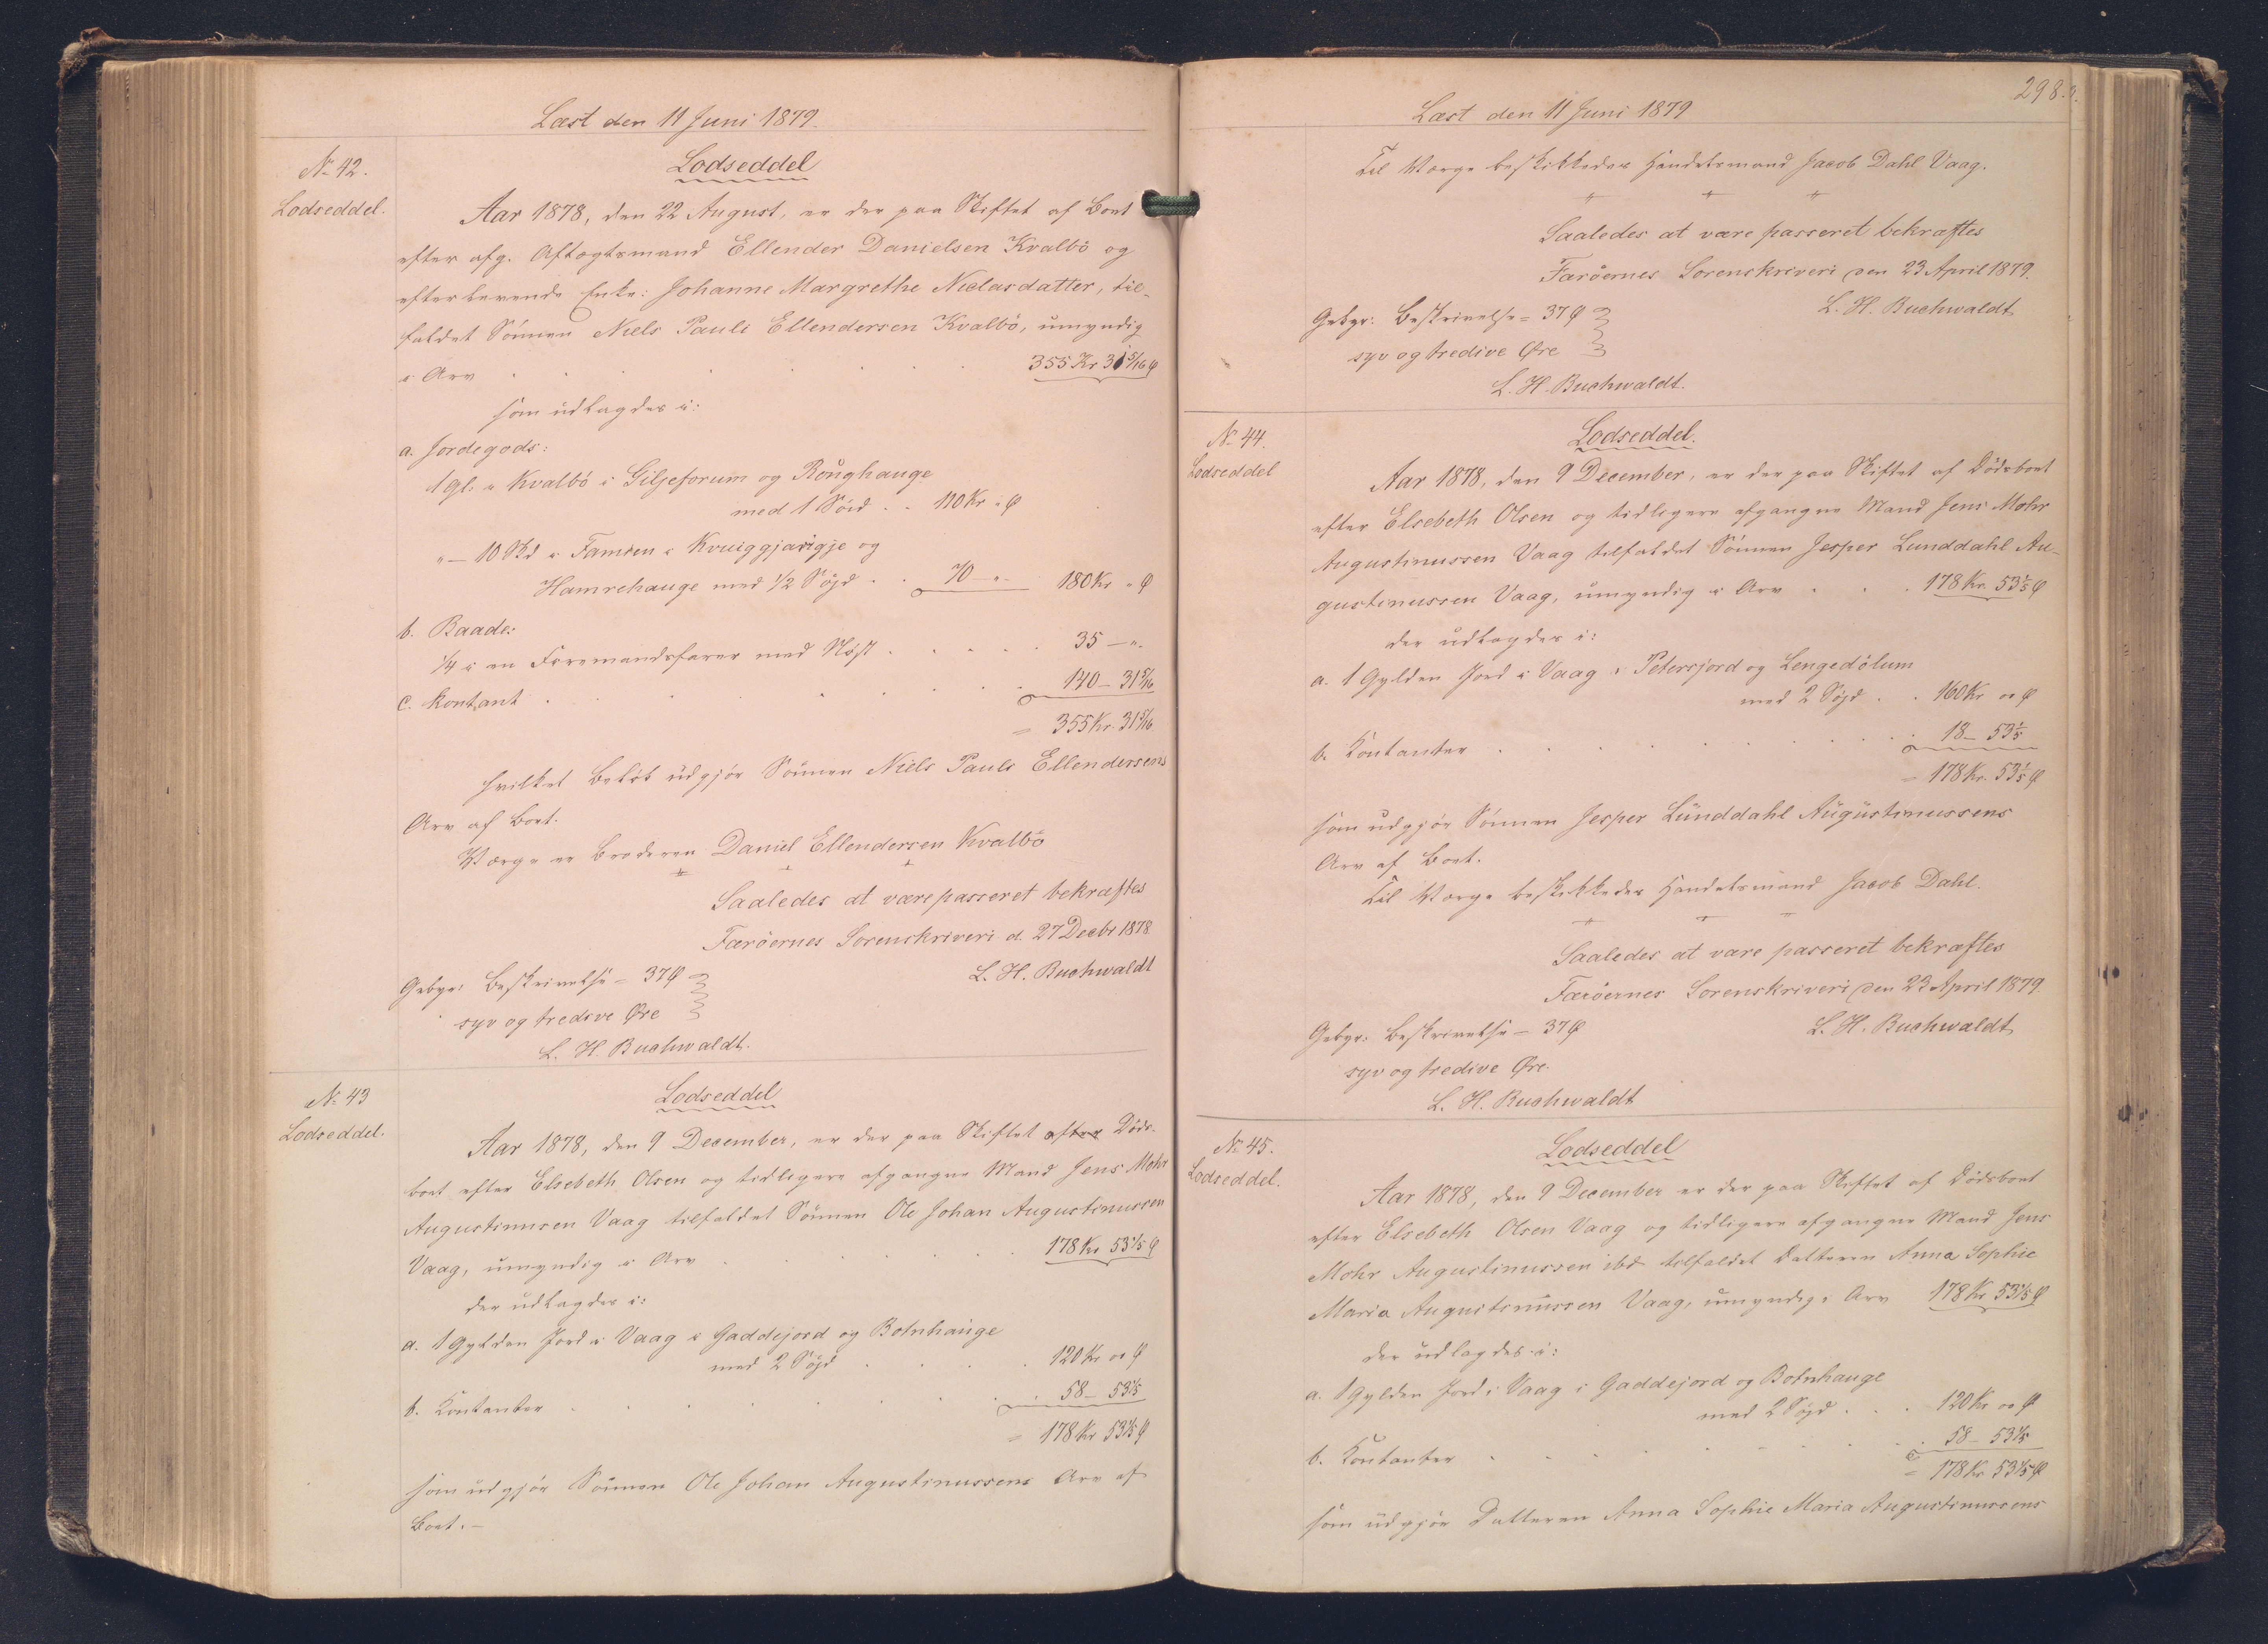 Læst den 11 Juni 1879.
No 42.
Lodseddel.
Lodseddel
Aar 1878, den 22 August, er der paa Skiftet af Boet
efter afg. Aftægtsmand Ellender Danielsen Kvalbö og
efterlevende Enke: Johanne Margrethe Niclasdatter, til-
faldet Sönnen Niels Pauli Ellendersen Kvalbö, umyndig
i Arv . . . . . . 355 Kr 31 5/16 Ø
som udlagdes i:
a. Jordegods:
1 Gl. i Kvalbö i Giljeforum og Roughauge
med 1 Söid . . 110 Kr " Ø
" — 10 Skd i Famien i Kvuiggjarigje og
Hamrehauge med 1/2 Söjd . . 70 — " 180 Kr " Ø
b. Baade:
1/4 i en Firemandsfarer med Nöst . . . . . 35 — "
c. Kontant . . . . . . 140 — 31 5/16
= 355 Kr. 31 5/16
hvilket Belöb udgjör Sönnen Niels Pauli Ellendersens
Arv af Boet.
Værge er Broderen Daniel Ellendersen Kvalbö
Saaledes at være passeret bekræftes
Færöernes Sorenskriveri d. 27 Decbr 1878
L. H. Buchwaldt
Gebyr: Beskrivelse = 37 Ø
syv og tredive Øre
L. H. Buchwaldt.
No 43
Lodseddel.
Lodseddel
Aar 1878, den 9 December, er der paa Skiftet after Döds-
boet efter Elsebeth Olsen og tidligere afgangne Mand Jens Mohr
Augustinusen Vaag tilfaldet Sönnen Ole Johan Augustinussen
Vaag, umyndig i Arv . . . . . 178 Kr 53 1/5 Ø
der udlagdes i:
a. 1 Gylden Jord i Vaag i Gaddejord og Botnhauge
med 2 Söjd . . . . 120 Kr oo Ø
b. Kontanter . . . . . . . 58 — 53 1/5
= 178 Kr 53 1/5 Ø
som udgjör Sönnen Ole Johan Augustinussens Arv af
Boet. —
298.a.
Læst den 11 Juni 1879
Til Værge beskikkedes Handelsmand Jacob Dahl Vaag.
Saaledes at være passeret bekræftes
Færöernes Sorenskriveri den 23 April 1879.
L. H. Buchwaldt
Gebyr: Beskrivelse = 37 Ø
syv og tredive Øre
L. H. Buchwaldt.
No 44.
Lodseddel
Lodseddel.
Aar 1878, den 9 December, er der paa Skiftet af Dödsboet
efter Elsebeth Olsen og tidligere afgangne Mand Jens Mohr
Augustinussen Vaag tilfaldet Sönnen Jesper Lunddahl Au-
gustinussen Vaag, umyndig i Arv . . . 178 Kr. 53 1/5 Ø
der udlagdes i:
a. 1 Gylden Jord i Vaag i Petersjord og Lengedölum
med 2 Söjd . . 160 Kr oo Ø
b. Kontanter . . . . . . . 18 — 53 1/5
= 178 Kr. 53 1/5 Ø
som udgjör Sönnen Jesper Lunddahl Augustinussens
Arv af Boet.
Til Værge beskikkedes Handelsmand Jacob Dahl.
Saaledes at være passeret bekræftes
Færöernes Sorenskriveri den 23 April 1879.
L. H. Buchwaldt
Gebyr: Beskrivelse — 37 Ø
syv og tredive Øre.
L. H. Buchwaldt
No 45.
Lodseddel.
Lodseddel
Aar 1878, den 9 December er der paa Skiftet af Dödsboet
efter Elsebeth Olsen Vaag og tidligere afgangne Mand Jens
Mohr Augustinussen ibd tilfaldet Datteren Anna Sophie
Maria Augustinussen Vaag, umyndig i Arv 178 Kr 53 1/5 Ø
der udlagdes i:
a. 1 Gylden Jord i Vaag i Gaddejord og Botnhauge
med 2 Söjd . . . 120 Kr oo Ø
b. Kontanter . . . . . . . 58 — 53 1/5
= 178 Kr 53 1/5 Ø
som udgjör Datteren Anna Sophie Maria Augustinussens